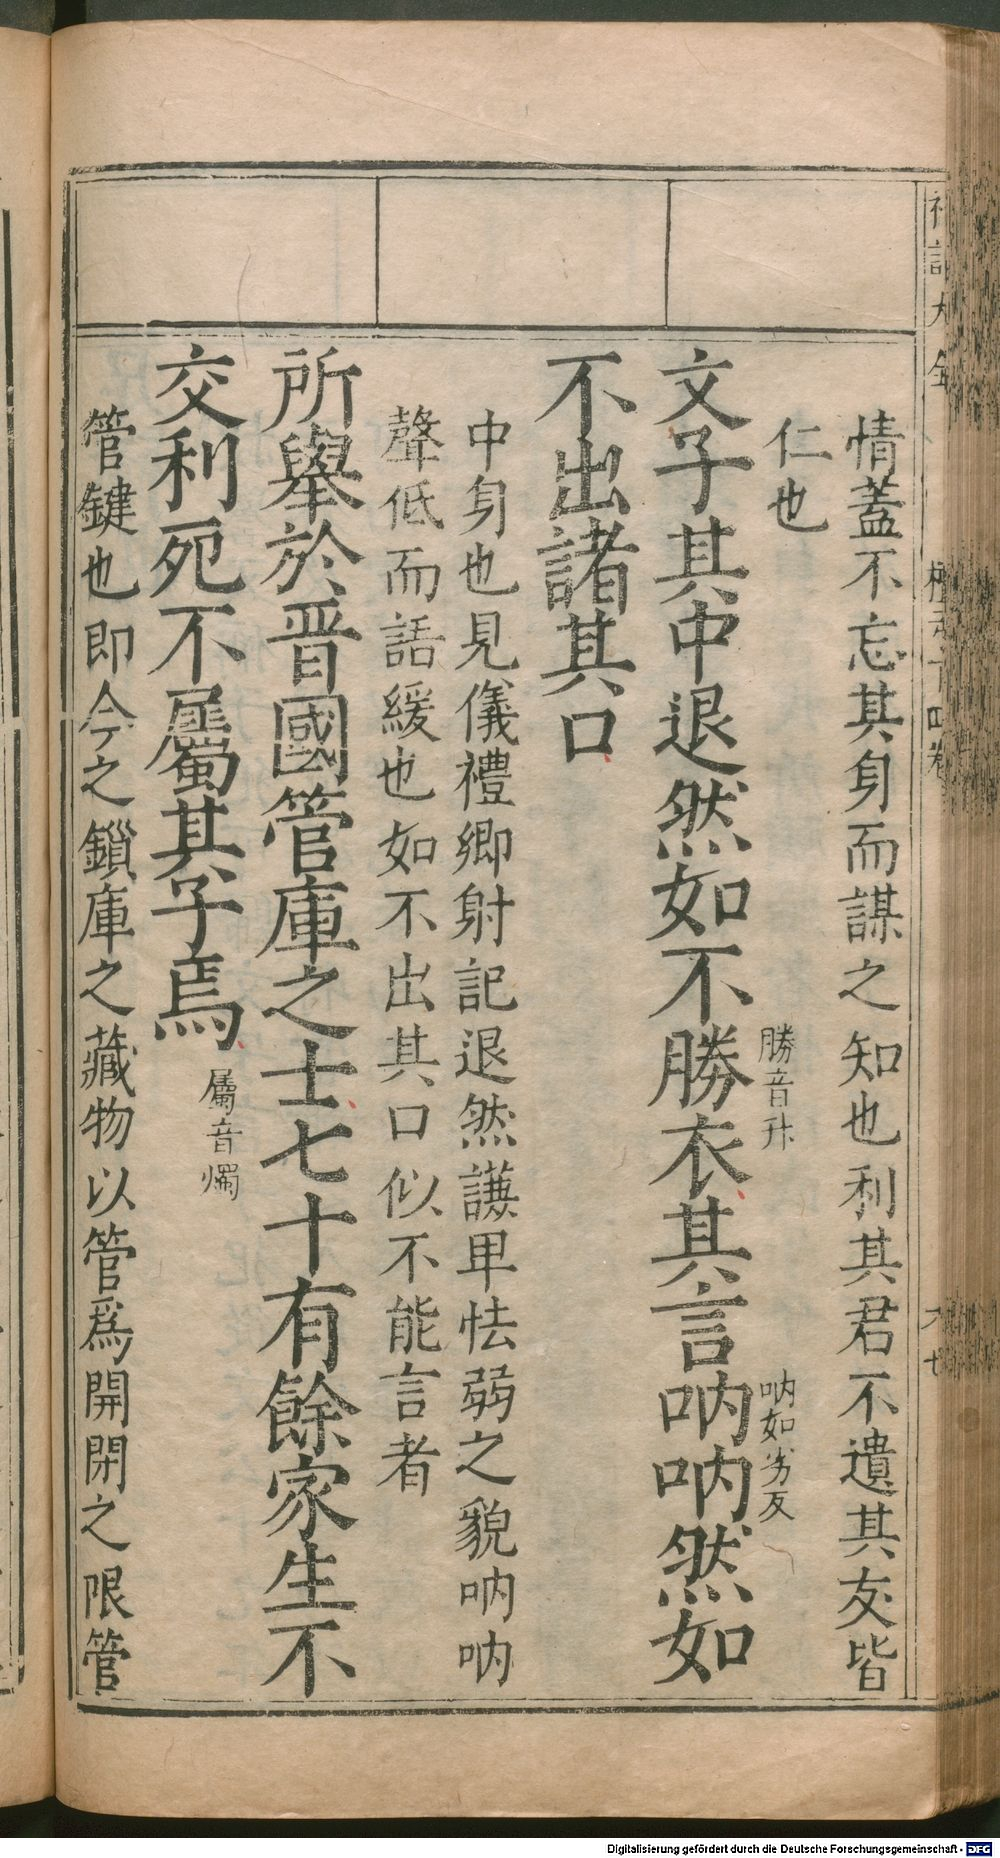 情蓋不忘其身而謀之知也利其君不遺其友皆
仁也
文子其中退然如不勝衣其言呐呐然如
勝音升
呐如劣反
不出諸其口
中身也見儀禮鄉射記退然謙卑怯弱之貌呐呐
聲低而話緩也如不出其口似不能言者
所舉於晋國管庫之士七十有餘家生不
交利死不屬其子焉
屬音燭
管鍵也即今之鎖庫之藏物以管爲開閉之限管
Digitalisierung gefördert durch die Deutsche Forschungsgemeinschaft - DFG